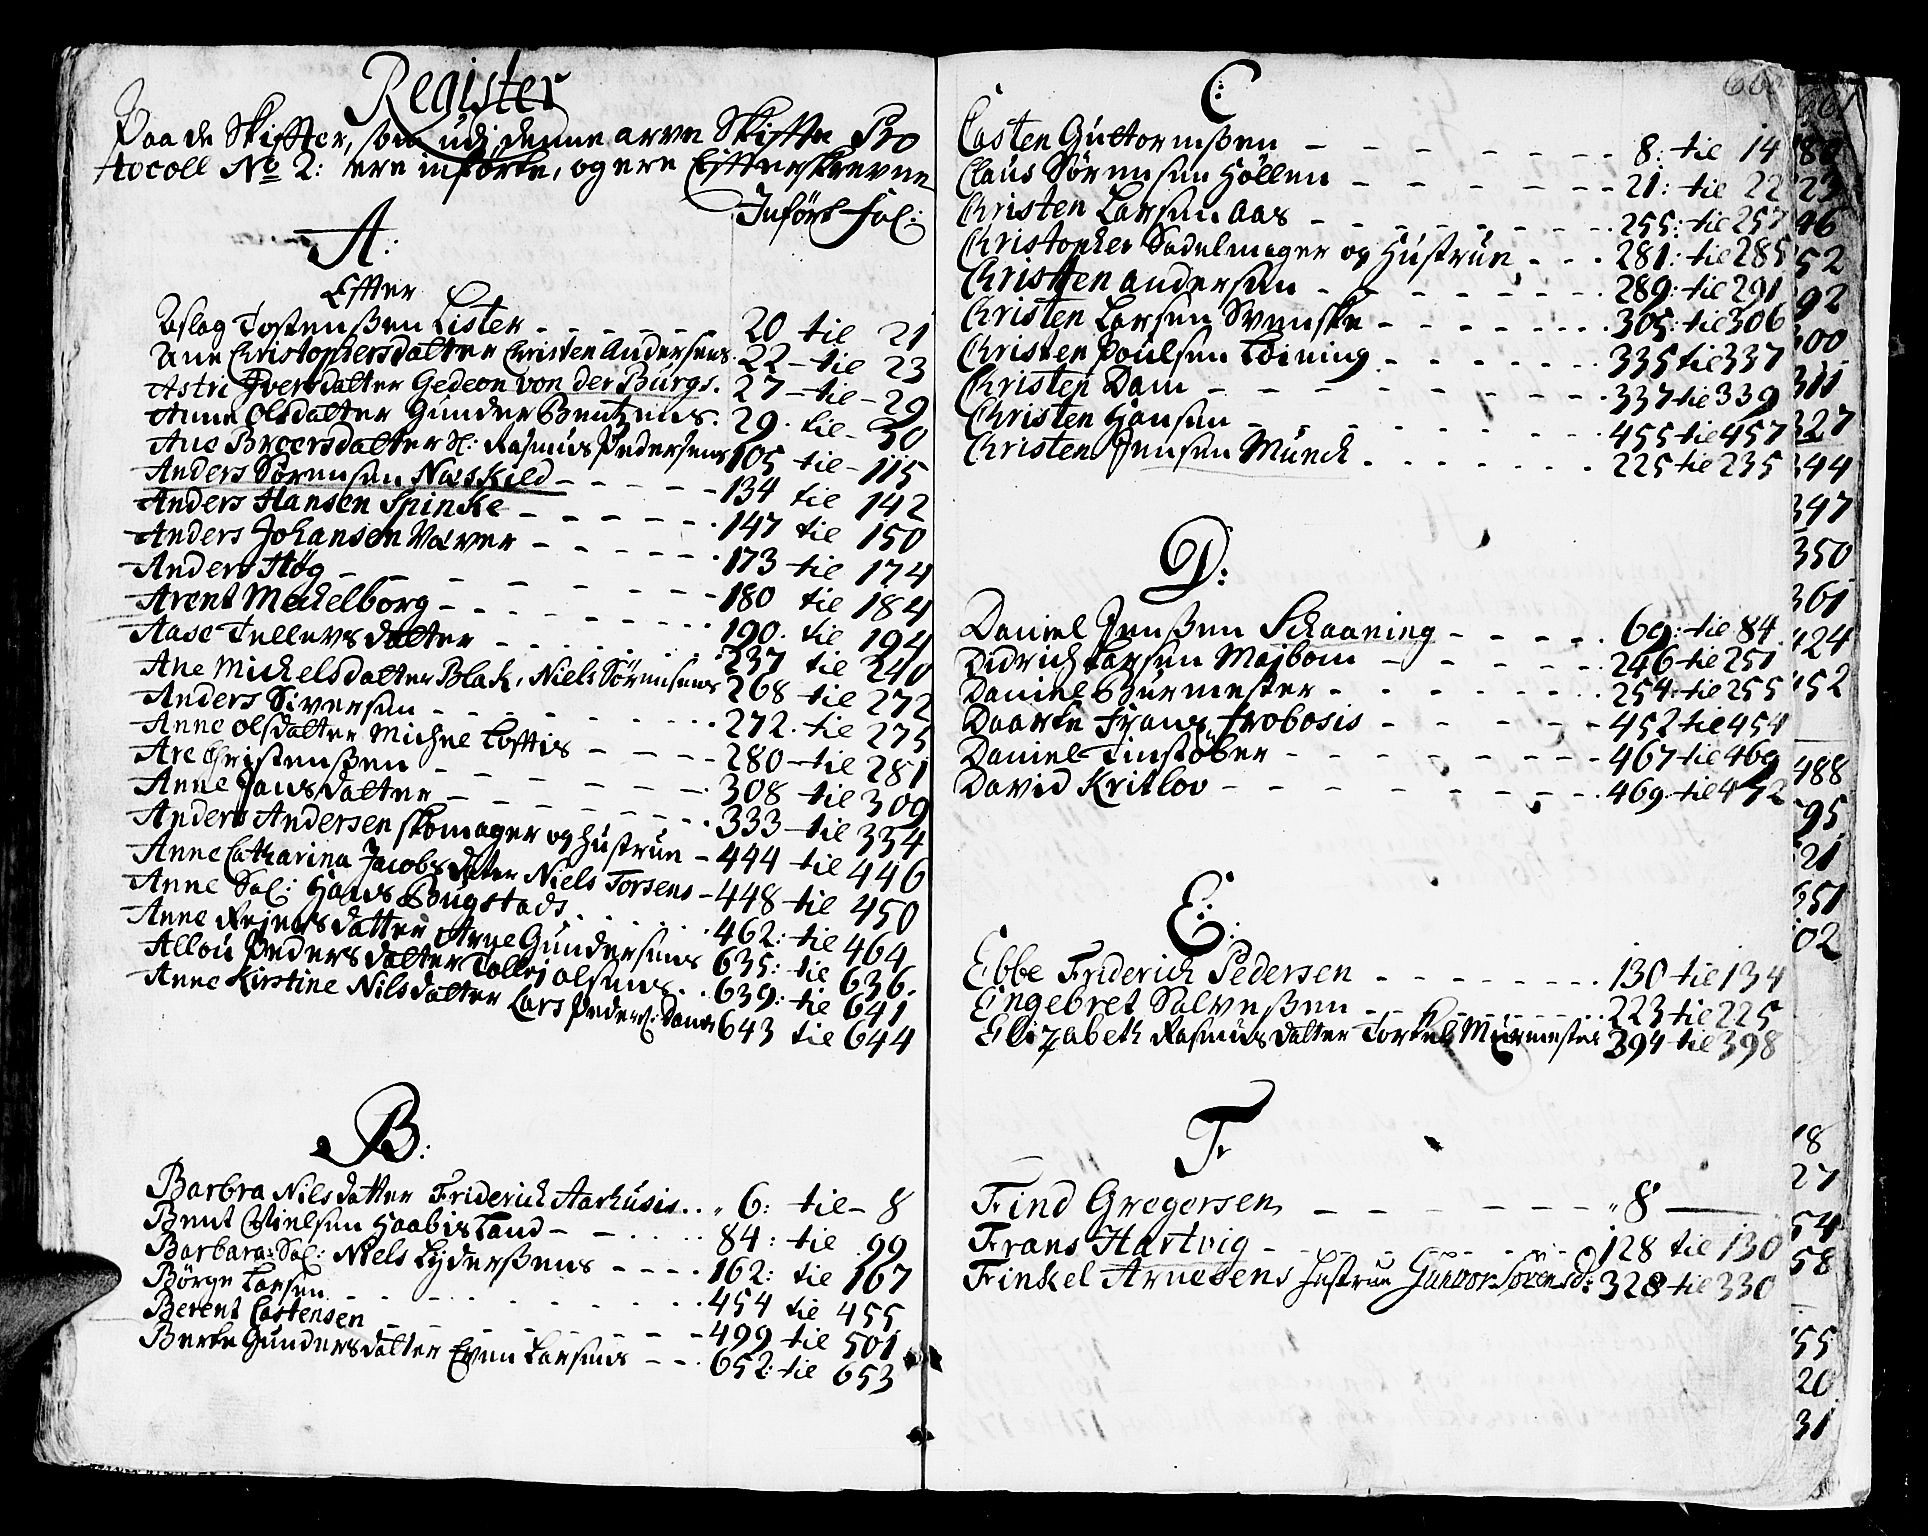 Register
Paa de Skiffter, som udj denne arve Skiffte Pro
tocoll No 2: ere inførte, og ere Effterskrevne
Inført fol:
A:
Effter
Aslag Tostensßen Lister - - - - - 20 til 21
Ane Christophersdatter Christen Andersens 22 - til 23
Astri Iversdatter Gedeon von der Burgs. 27 - til - 29
Anne Olsdatter Gunder Bentzens. 29. til - 30
Ane Broersdatter Sl: Rasmus Pedersens 105 til - 115
Anders Sørensen Næskild - - - - 134 til 142
Anders Hansen Spinke - - - - - 147 til 150
Anders Johansen Væver - - - - - 173 - til 174
Anders Høg - - - - - - 180 til 184
Arent Meckelborg - - - - - - 190. til 194
Aase Tellevsdatter - - - - - 237 til 240
Ane Michelsdatter Blak, Niels Sørensens 268 til 272
Anders Siversen - - - - - - 272. til 275
Anne Olsdatter Michel Tofftis - - - - 280 - til 281
Are Christensßen - - - - - - 308 til 309
Anne Jansdatter - - - - - - 333 - til 334
Anders Andersen skomager og Hustrue - 444 til 446
Anne Catharina Jacobsdater Niels Torsens - 448 - til 450
Anne Sal: Hans Bougstads . . . . . 462: til 464
Anne Rejersdatter Arne Gundersens 635: til 636.
Allou Pedersdatter Tollej Olsens. . 639: til 641
Anne Kirstine Nilsdatter Lars Peders: Dans 643 til 644
B:
Barbra Nilsdatter Friderich Aarhusis . . 6: til - 8
Bent Nielsen Haabistand - - . . . . 84: til 99
Barbara Sal: Niels Lydersßens - - - - 162: til 167
Børge Larsen - - - - - - 454 til 455
Berent Castensen - - - - - - 499 til 501
Berte Gundersdatter Even Larsens - - . 652: til 653
C:
Casten Guttormsßen - - - - - - 8: til 14
Claus Sørensen Høllen - - - - - - 21: til 22
Christen Larsen Aas - - - - - - 255: til 257
Christopher Sadelmager og Hustrue . - . 281: til 285
Christen Andersen - - - - - - 289: til 291
Christen Larsen Svenske - - - - - - 305: til 306
Christen Poulsen Toining - - - - - - 335 til 337
Christen Dam - - - - - - 337 til 339
Christen Hansen - - - - - - 455 til 457
Christen Jensen Munck . . . . . . . 225 til 235
D:
Daniel Jensßen Schaaning - - - - . 69: til 84
Didrich Larsen Majbom - - - - - 246 til 251
Daniel Burmester - - - - - - 254: til 255
Daarte Frans Frobosis - - - - - 452 til 454
Daniel Tinstøber - - - - - - 467 til 469
David Kritlov - - - - - - 469. til 472
E:
Ebbe Friderich Pedersen - - - - - - 130 til 134
Engebret Salvesßen - - - - - - 223 til 225
Elizabeth Rasmusdatter Torkels Murmesters 394 til 398
F
Find Gregersen - - - - - - 8
Frans Hartvig - - - - - - 128 til 130
Finkel Arnesens Hustrue Gunvor Sørensd: 328 til 330
661
23
46
52
92
300
311
327
344
347
350
361
424
452
488
95
21
651
02
18
27
54
58
55
20
31